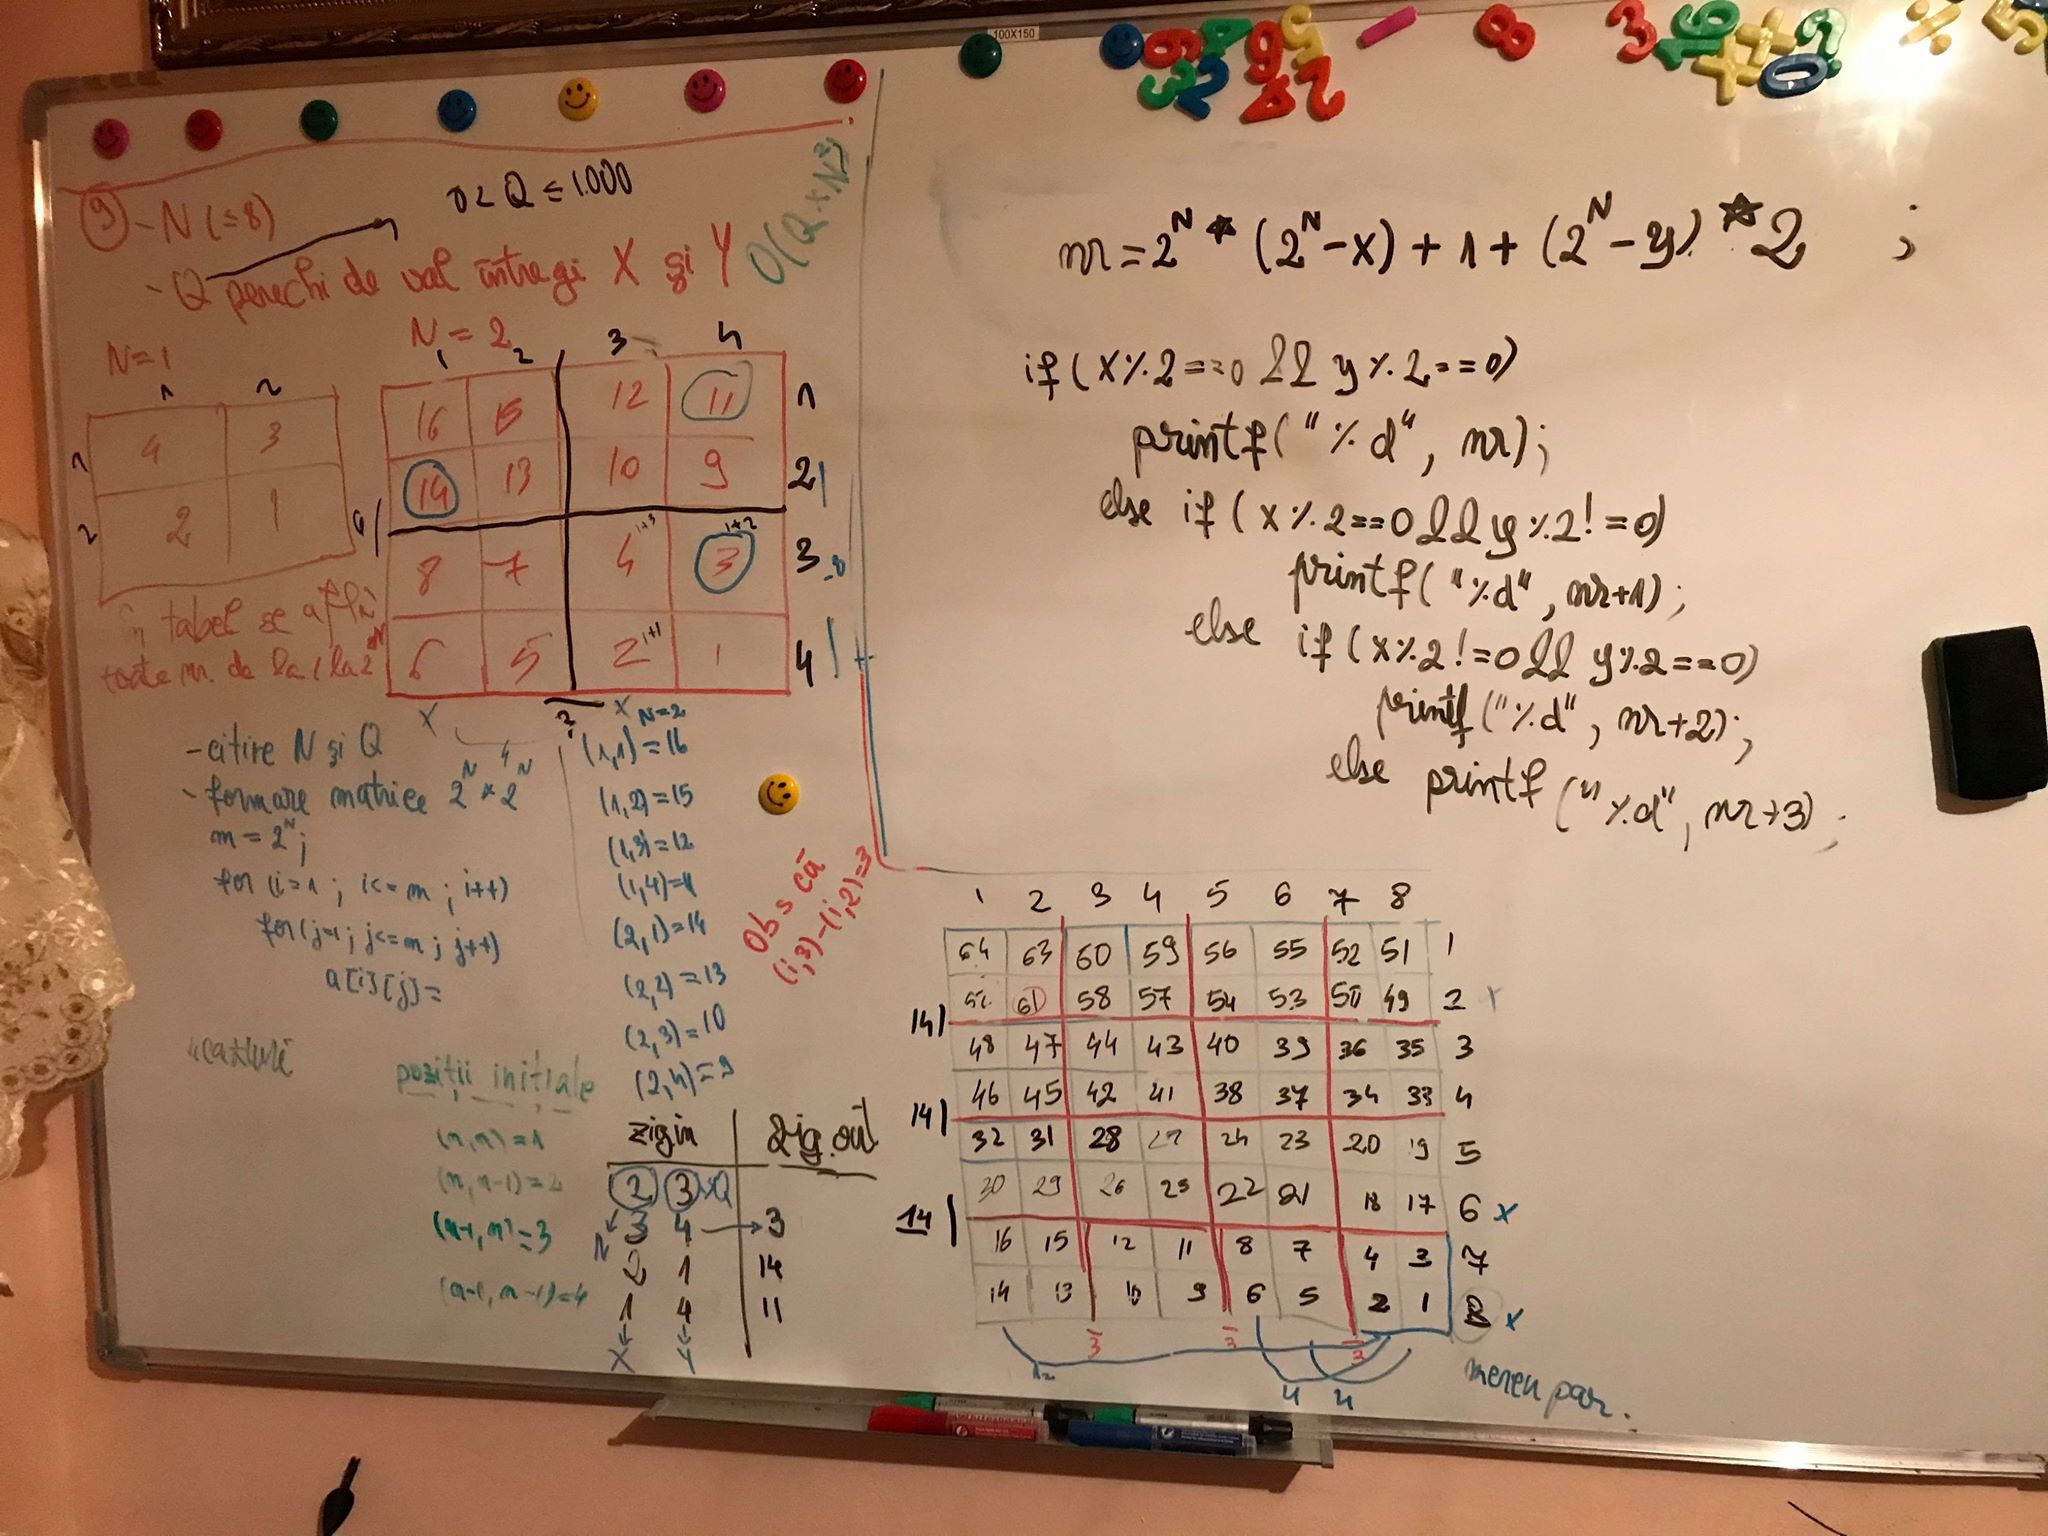 100X150
6 4 6 5 3 2 4 2 8 3 9 1 + + x x 0 ? ÷ 5
⑨ - N (≤8)
0 < Q ≤ 1.000
- Q perechi de val întregi X și Y
N=1
1 2
4 3 1
2 1 2
În tabel se află
toate nr. de la 1 la
N = 2
1 2 3 4
16 15 12 11 1
14 13 10 9 2
i+3 i+2
8 7 4 3 3
i+1
6 5 2 1 4
X X
- citire N și Q
- formare matrice 2^N * 2^N
m = 2^N;
for (i=1; i<=m; i++)
for(j=1; j<=m; j++)
a[i][j]=
N=2
(1,1)=16
(1,2)=15
(1,3)=12
(1,4)=11
(2,1)=14
(2,2)=13
(2,3)=10
(2,4)=9
Obs că
(i,3)-(i,2)=3
poziții inițiale
(n,n)=1
(n,n-1)=2
(n-1,n)=3
(n-1,n-1)=4
zigin zig.out
2 3 Q
N 3 4 → 3
2 1 14
1 4 11
X Y
nr = 2^N * (2^N - x) + 1 + (2^N - y) * 2 ;
if(x%2==0 && y%2==0)
printf("%d", nr);
else if(x%2==0 && y%2!=0)
printf("%d", nr+1);
else if(x%2!=0 && y%2==0)
printf("%d", nr+2);
else printf("%d", nr+3);
1 2 3 4 5 6 7 8
64 63 60 59 56 55 52 51 1
61 58 57 54 53 50 49 2
14
48 47 44 43 40 39 36 35 3
46 45 42 41 38 37 34 33 4
14
32 31 28 27 24 23 20 19 5
30 29 26 25 22 21 18 17 6 x
14
16 15 12 11 8 7 4 3 7
14 13 10 9 6 5 2 1 8 x
3 3 3
12 4 4
mereu par.